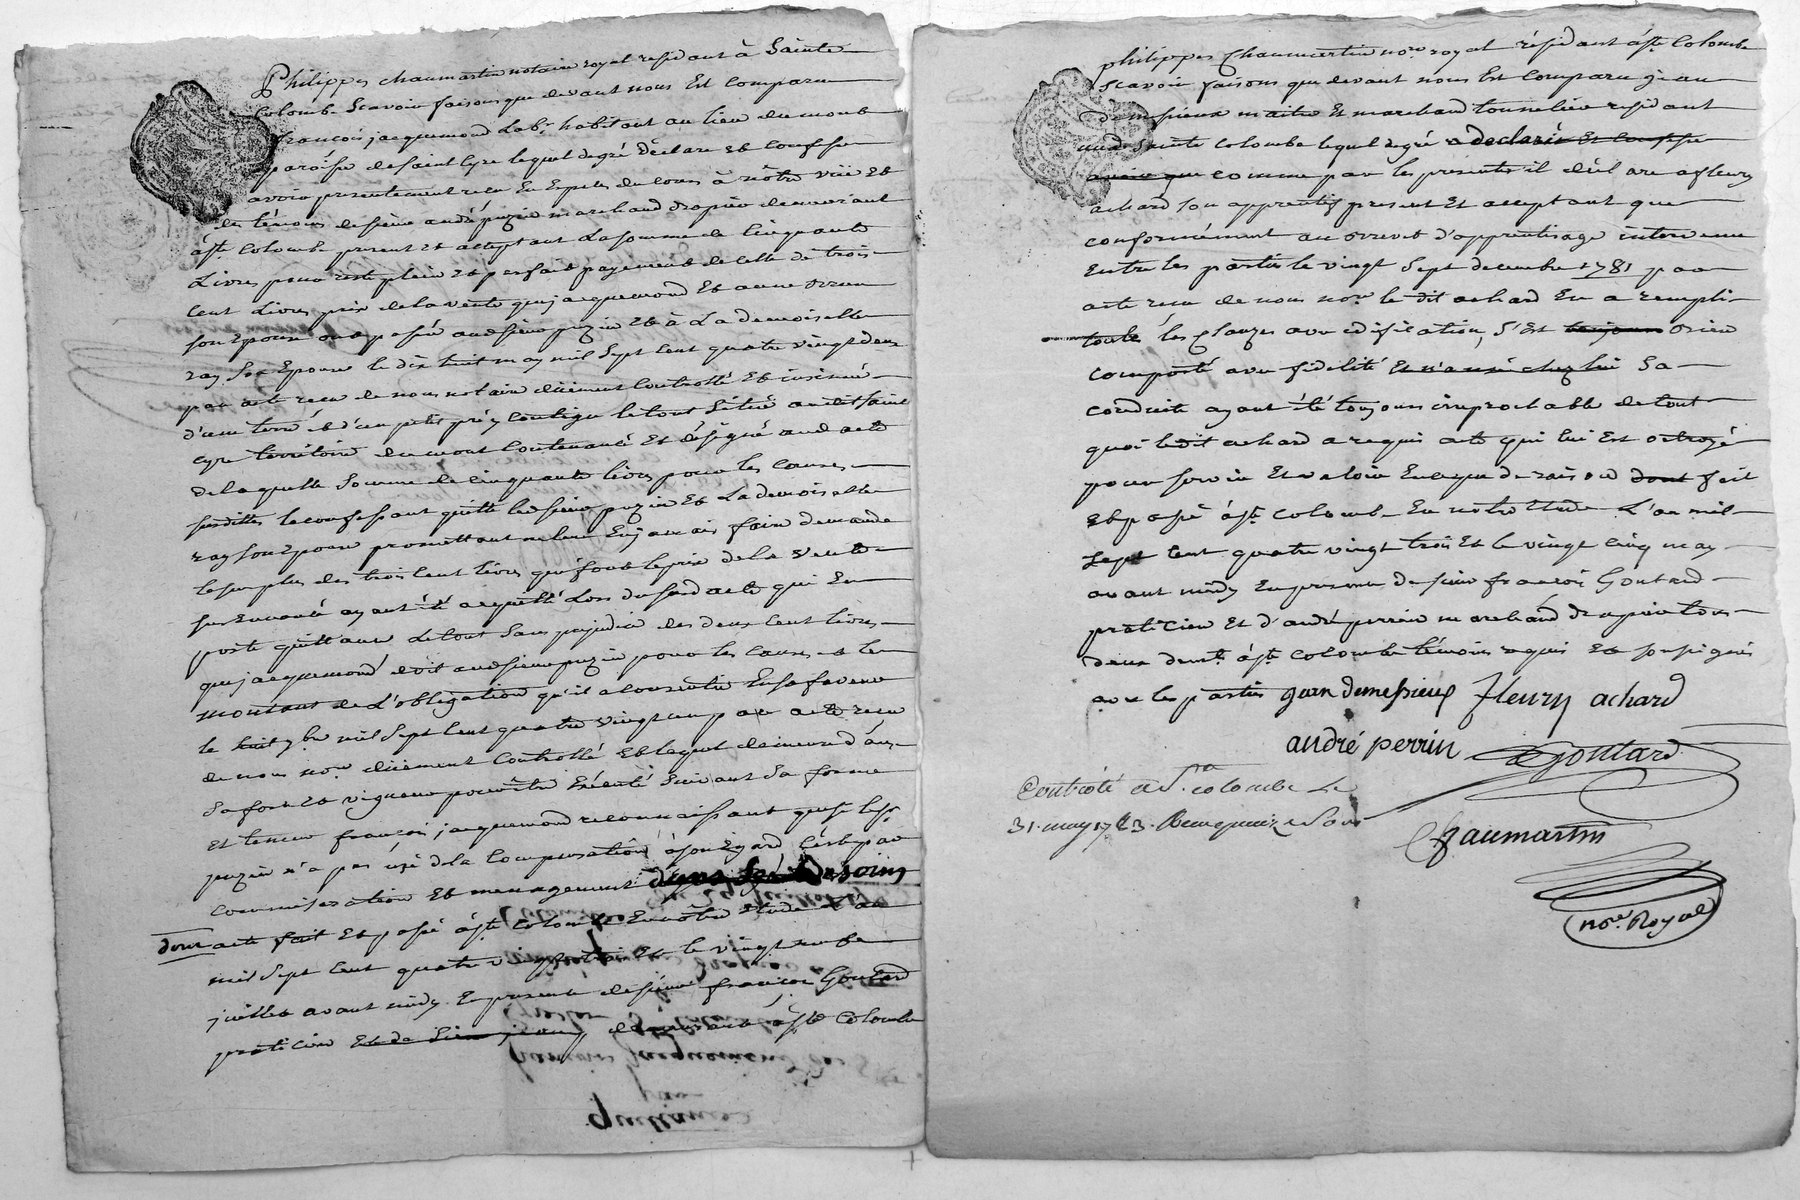 Philippes chaumartin notaire royal residant à Sainte
Colombe Scavoir faisons que devant nous Est comparu
françois jacquemond Lab.r habitant au lieu du mont
paroisse de saint Cyr lequel degré déclare et confesse
avoir presentement recu En Especes du cours à nôtre vüe et
des témoins de sieur andré puzin marchand drapier demeurant
à ste Colombe present et acceptant La somme de Cinquante
Livres pour reste plein et parfait payement de celle de trois
Cent Livres prix de la vente que jacquemond Et anne
son Epouse ont passé aud sieur puzin et à La demoiselle
ray Son Epouse le dix huit may mil Sept Cent quatre vingt deux
par acte recu de nous notaire düement Controllé Et insinué
d'une terre et d'un petit pré y contigu le tout Situé audit saint
Cyr territoire du mont Contenancé Et désigné aud acte
de laquelle Somme de cinquante livres pour les causes
susdittes le confessant quitte led sieur puzin et La demoiselle
ray son Epouse promettant ne leur En jamais faire demande
le surplus des trois Cent livres qui font le prix de la vente
sus Enoncée ayant été acquitté Lors dud acte qui En
porte quittance Le tout Sans prejudice des deux Cent livres
que jacquemond doit aud sieur puzin pour les causes et le
montant de L'obligation qu'il a consentie En sa faveur
le huit 9bre mil Sept Cent quatre vingt un par acte recu
de nous nore düement Controllé Et lequel demeure dans
Sa force et vigueur pour être Exécuté Suivant Sa forme
Et teneur françois jacquemond reconnaissant que led sr
puzin n'a pas usé de la Compensation à son Egard C'est par
commiseration Et menagement
dont acte fait Et passé à ste Colombe En nôtre Etude L'an
mil Sept Cent quatre vingt trois Et le vingt neuf
juillet avant midy En presence de sieur françois Goutard
praticien Et de Sieur demeurant à ste Colombe
quittance
philippes Chaumartin nore royal résidant à ste Colombe
scavoir faisons que devant nous Est comparu jean
Demessieux maitre Et marchand tonnelier residant
aud Sainte Colombe lequel degré a declaré Et confessé
avoir que comme par les presentes il déclare a fleury
achard son apprentif present Et acceptant que
conformément au brevet d'apprentisage intervenu
Entre les parties le vingt Sept decembre 1781 par
acte recu de nous nore le dit achard En a rempli
toutes les clauzes avec édification, S'est toujours bien
comporté avec fidelité Et n'a usé chez lui Sa
conduite ayant été toujours irreprochable de tout
quoi ledit achard a requis acte qui lui Est octroyé
pour servir Et valoir Ence que de raison dont fait
Et passé à ste Colombe En nôtre Etude L'an mil
Sept Cent quatre vingt trois Et le vingt cinq may
avant midy En presence de sieur françois Goutard
praticien Et d'andré perrin marchand drapier tous
deux demts à ste Colombe témoins requis Et soussignés
avec les parties jean demessieux fleury achard
andré perrin Goutard
Controlé a Ste colombe Le
31. may 1783. Recu quinze sols
Chaumartin
nore. Royal